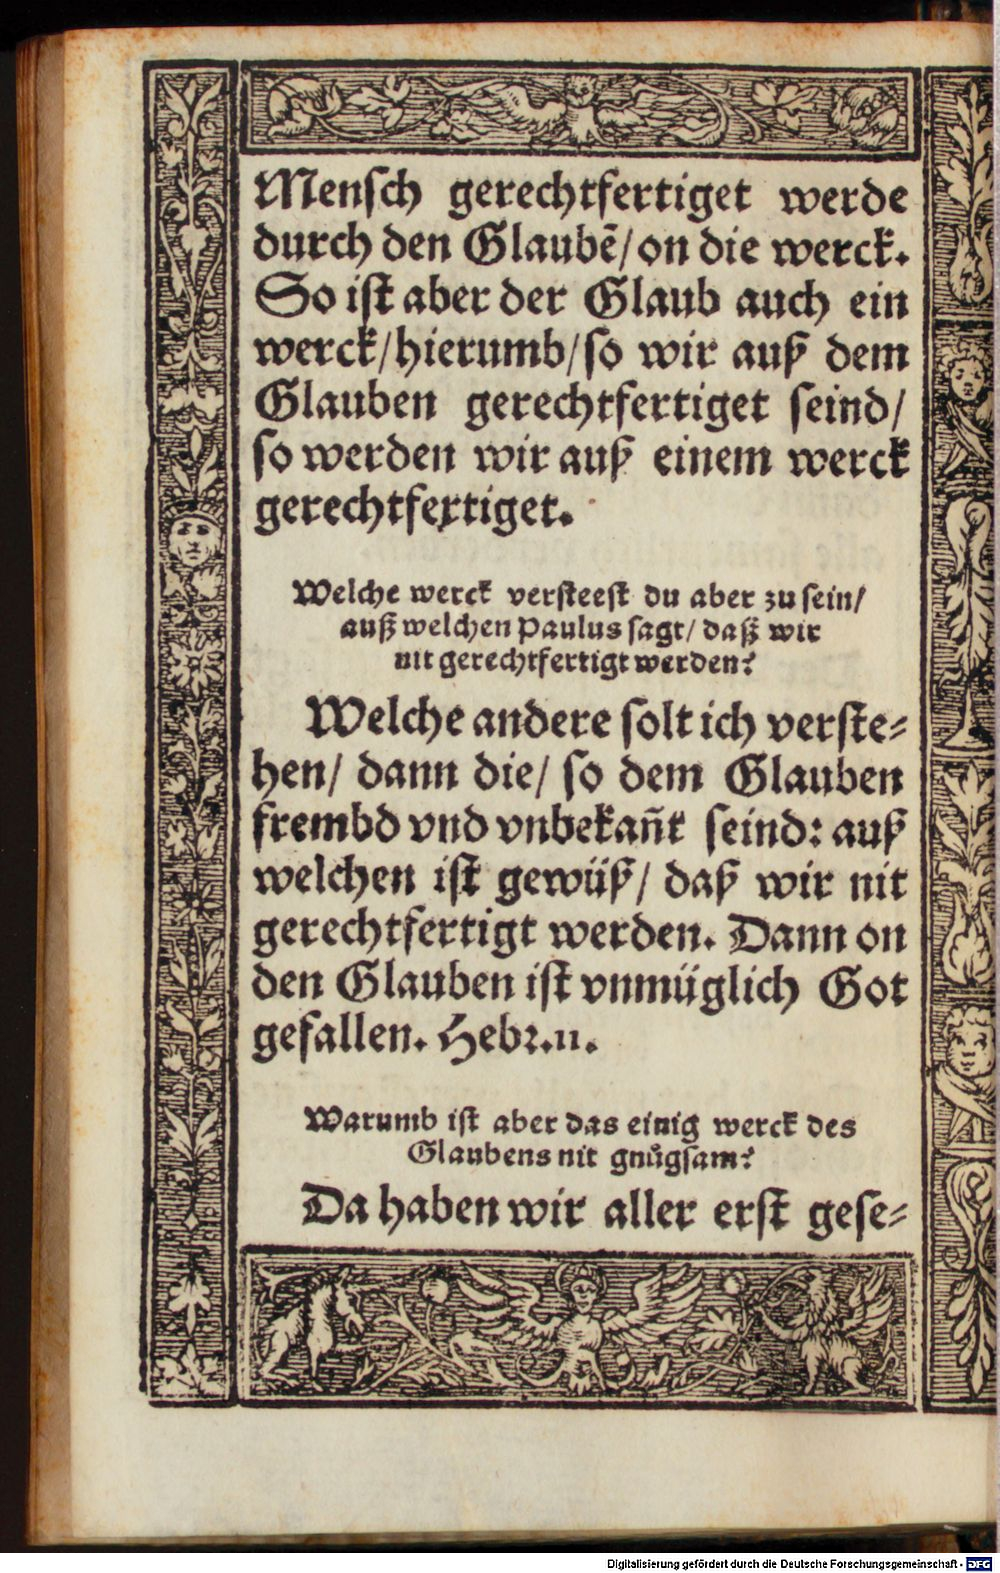 Mensch gerechtfertiget werde
durch den Glaubẽ/ on die werck.
So ist aber der Glaub auch ein
werck/ hierumb/ so wir auß dem
Glauben gerechtfertiget seind/
so werden wir auß einem werck
gerechtfertiget.
Welche werck versteest du aber zu sein/
auß welchen Paulus sagt/ daß wir
nit gerechtfertigt werden?
Welche andere solt ich verste-
hen/ dann die/ so dem Glauben
frembd vnd vnbekañt seind: auß
welchen ist gewüß/ daß wir nit
gerechtfertigt werden. Dann on
den Glauben ist vnmüglich Got
gefallen. Hebr.11.
Warumb ist aber das einig werck des
Glaubens nit gnůgsam?
Da haben wir aller erst gese-
Digitalisierung gefördert durch die Deutsche Forschungsgemeinschaft - DFG